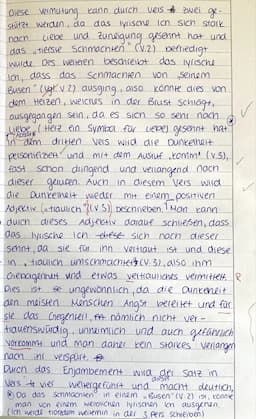 Diese Vermutung kann durch Vers 2 zwei ge-
stützt werden, da das lyrische Ich sich stark
nach Liebe und Zuneigung gesehnt hat und
das „tiefste Schmachten" (V.2) befriedigt
wurde. Des weiteren beschreibt das lyrische
Ich, dass das Schmachten von „seinem
Busen" (vgl. V.2) ausging, also könnte dies von
dem Herzen, welches in der Brust schlägt,
ausgegangen sein, da es sich so sehr nach
Liebe (Herz ein Symbol für Liebe) gesehnt hat.
In dem dritten Vers wird die Dunkelheit
personifiziert und mit dem Ausruf „komm!" (V.3),
fast schon dringend und verlangend nach
dieser gerufen. Auch in diesem Vers wird
die Dunkelheit wieder mit einem positiven
Adjektiv „traulich" (V.3) beschrieben. Man kann
durch dieses Adjektiv darauf schließen, dass
das lyrische Ich sich nach dieser
sehnt, da sie für ihn vertraut ist und diese
in „traulich umschmachtet" (V.3), also ihm
Geborgenheit und etwas vertrauliches vermittelt. R
Dies ist ungewöhnlich, da die Dunkelheit
den meisten Menschen Angst bereitet und für
sie das Gegenteil, nämlich nicht ver-
trauenswürdig, unheimlich und auch gefährlich
vorkommt und man daher kein starkes Verlangen
nach ihr verspürt.
Durch das Enjambement wird der Satz in
Vers vier weitergeführt und macht deutlich,
Da das Schmachten in einem „Busen" (V.2) ist, könnte
man von einem weiblichen lyrischen Ich ausgehen.
(Ich werde trotzdem weiterhin in der 3. Pers. schreiben)